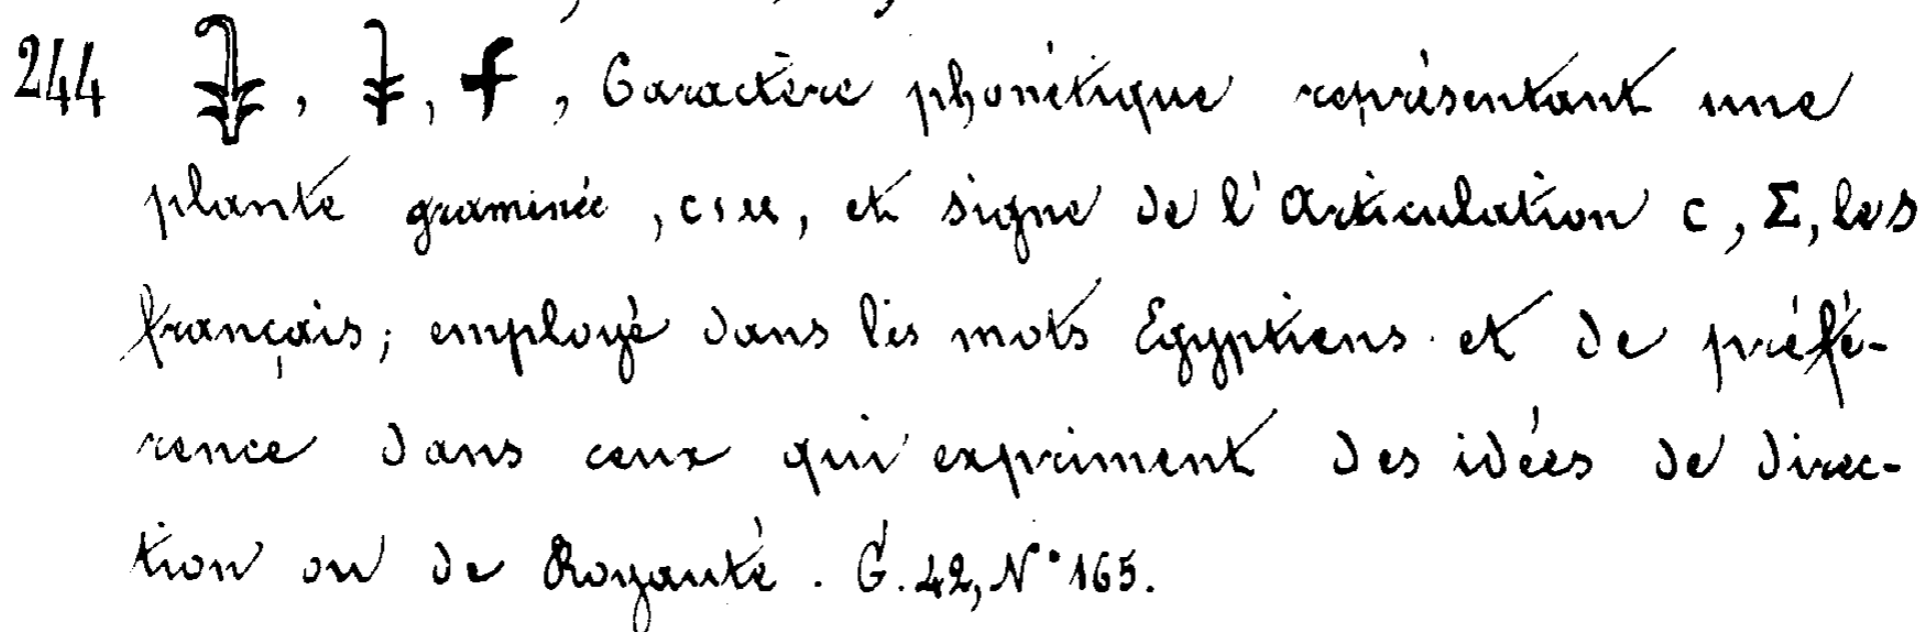 244 𓇓, 𓇓, , Caractère phonétique représentant une
plante graminée, ⲥⲓⲙ, et signe de l'articulation ⲥ, Σ, les
français; employé dans les mots Egyptiens et de préfé-
rence dans ceux qui expriment des idées de direc-
tion ou de Royauté. G. 42, N° 165.